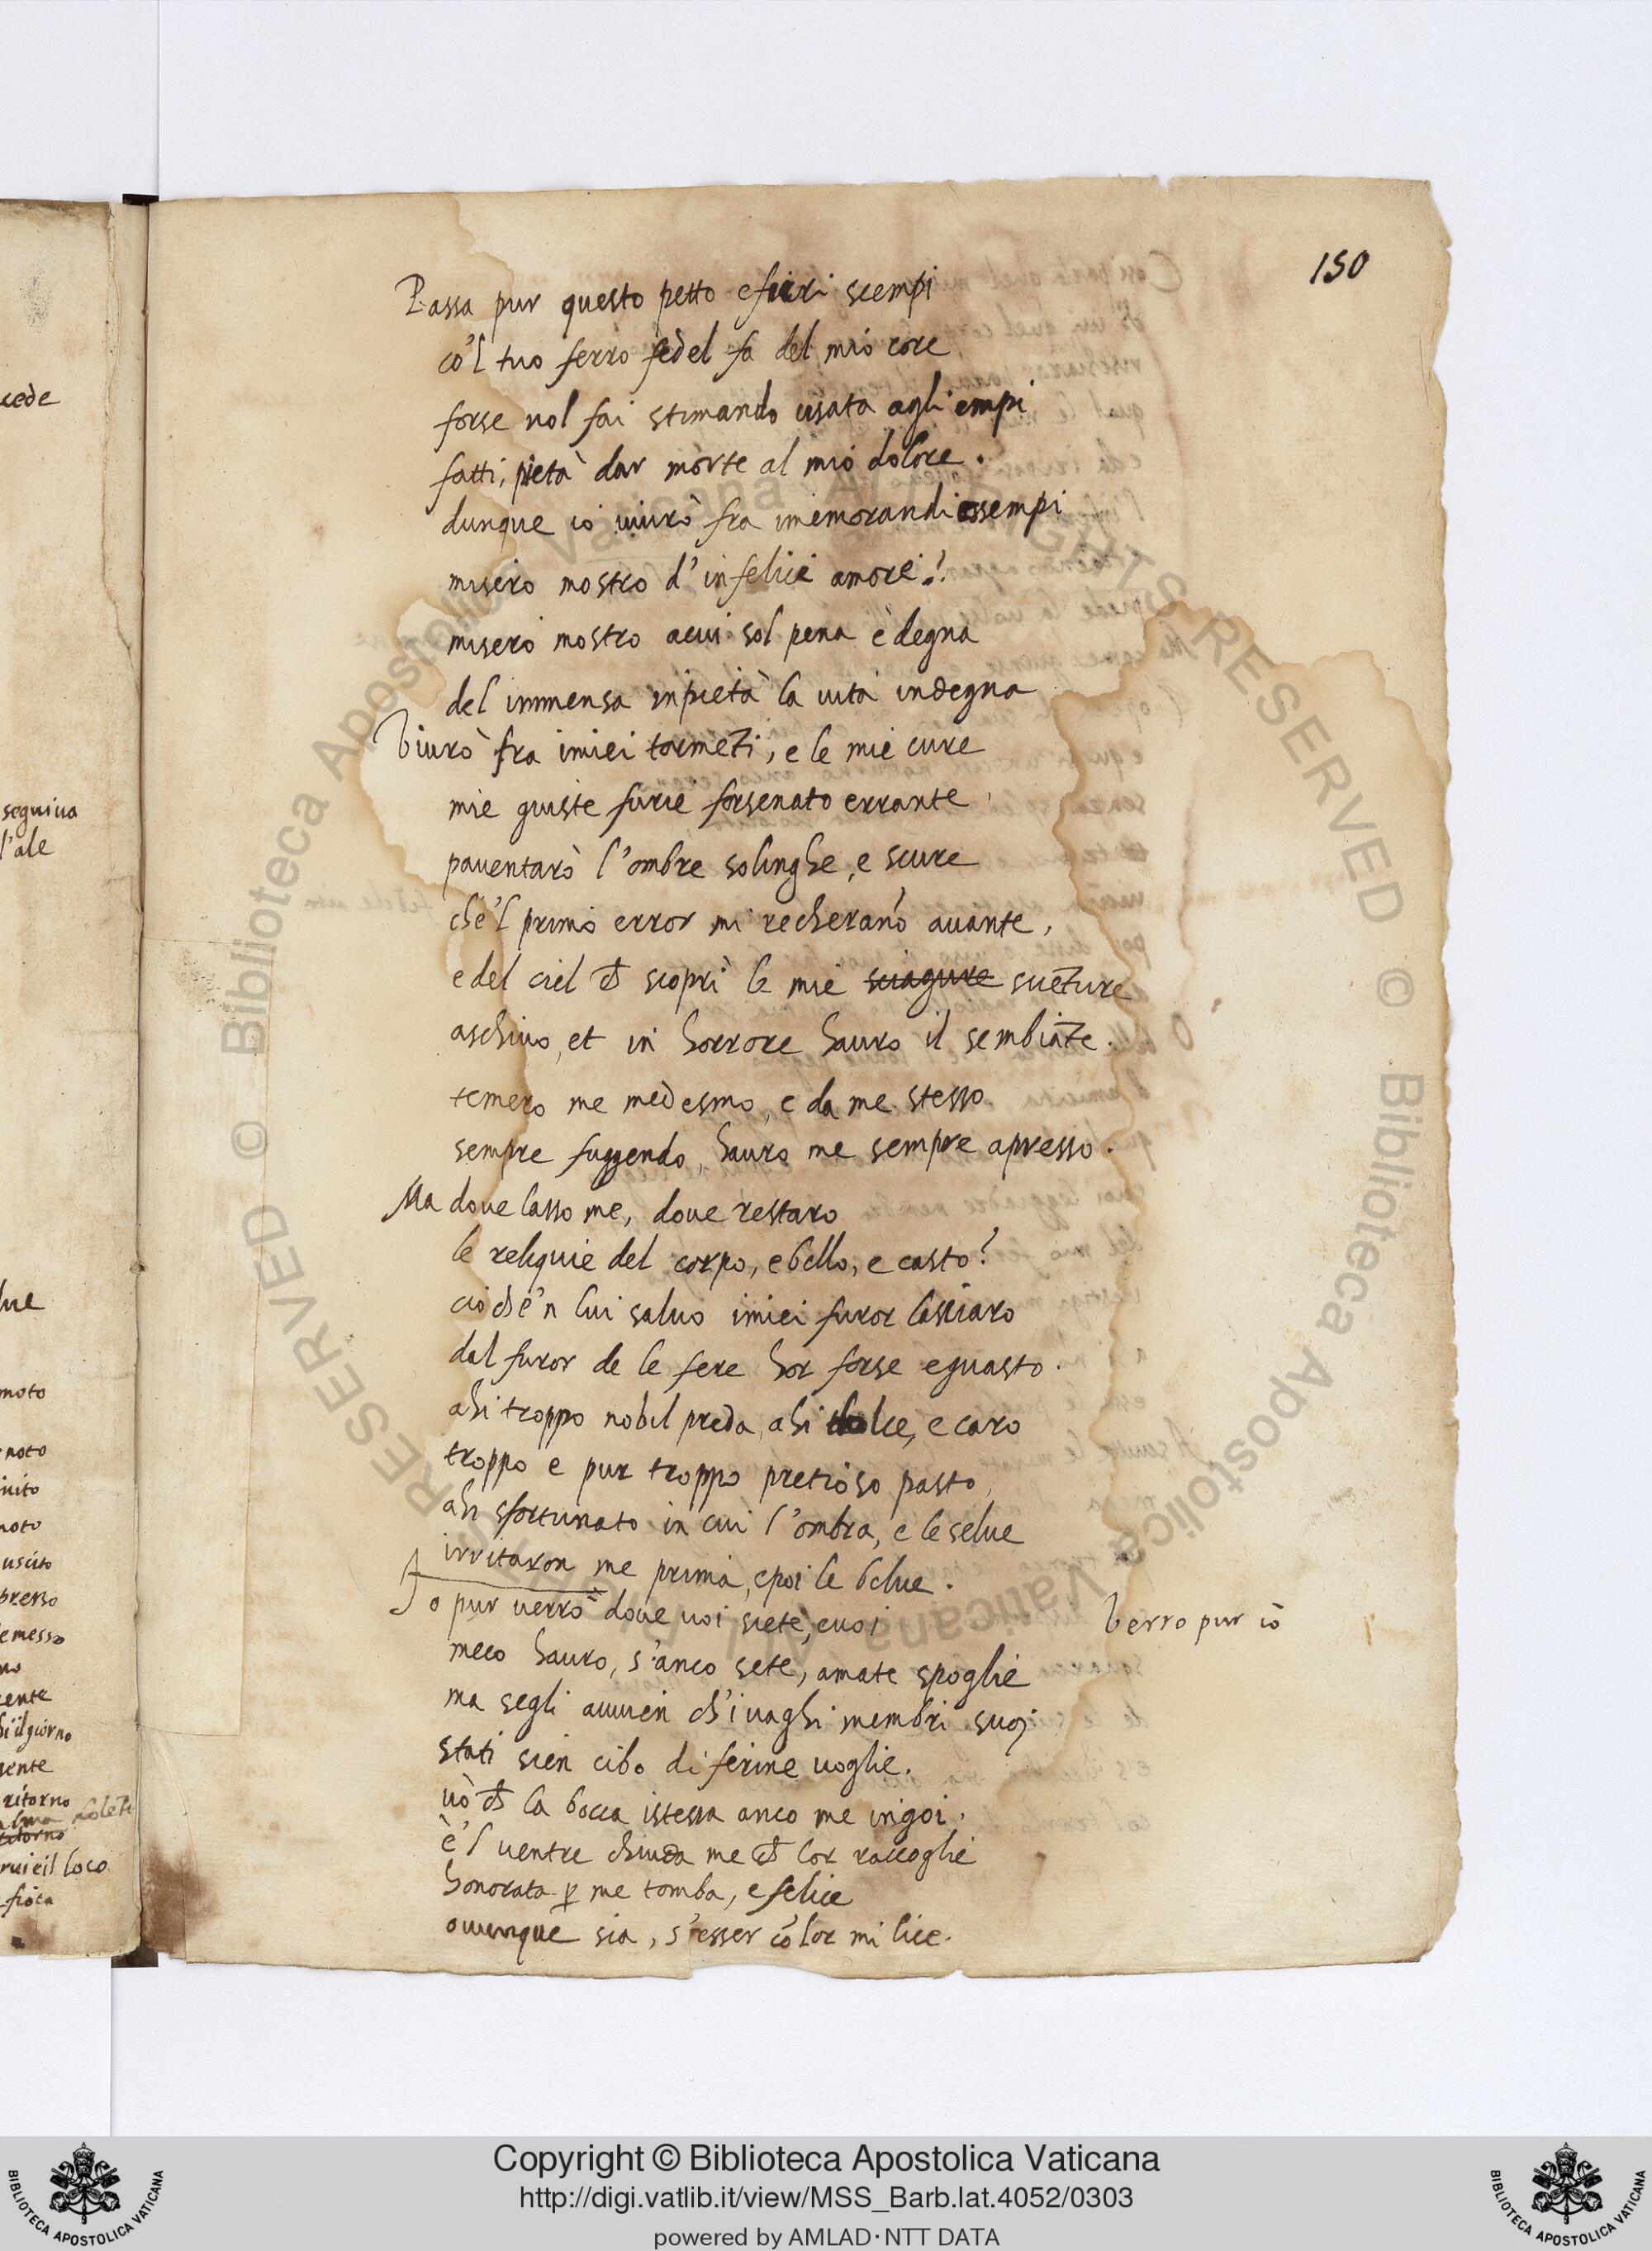 150
Passa pur questo petto e fieri scempi
co'l tuo ferro fedel fa del mio core
forse nol fai stimando usata agli empi
fatti, pietà dar morte al mio dolore.
dunque io uiurò fra imemorandi essempi
misero mostro d'infelice amore?
misero mostro a cui sol pena è degna
del immensa inpietà la uita indegna
Viurò fra i miei tormēti, e le mie cure
mie giuste furie forsenato errante,
pauentarò l'ombre solinghe, e scure
che'l primo error mi recherāno auante,
e del ciel ch scoprì le mie sciagure suēture
aschiuo, et in horrore hauro il sembiāte.
temero me medesmo, e da me stesso
sempre fuggendo, hauro me sempre apresso.
Ma doue lasso me, doue restaro
le reliquie del corpo, e bello, e casto?
ciò ch'e'n lui saluo i miei furor lasciaro
dal furor de le fere hor forse e guasto.
ahi troppo nobil preda, ahi dolce, e caro
troppo e pur troppo pretioso pasto,
ahi sfortunato in cui l'ombra, e le selue
irritaron me prima, e poi le belue.
Io pur uerrò doue uoi siete, e uoi
Verro pur iò
meco hauro, s'anco sete, amate spoglie
ma segli auuien ch'i uaghi membri suoi
stati sien cibo di ferine uoglie.
uò ch la bocca istessa anco me ingoi.
e'l uentre chiuda me ch lor raccoglie
honorata p me tomba, e felice
ouunque sia, s'esser cō lor mi lice.
cede
seguiua
l'ale
moto
noto
uscito
ritorno
Copyright © Biblioteca Apostolica Vaticana
http://digi.vatlib.it/view/MSS_Barb.lat.4052/0303
powered by AMLAD·NTT DATA
BIBLIOTECA APOSTOLICA VATICANA
BIBLIOTECA APOSTOLICA VATICANA
© Biblioteca Apostolica Vaticana ALL RIGHTS RESERVED
© Biblioteca Apostolica Vaticana ALL RIGHTS RESERVED